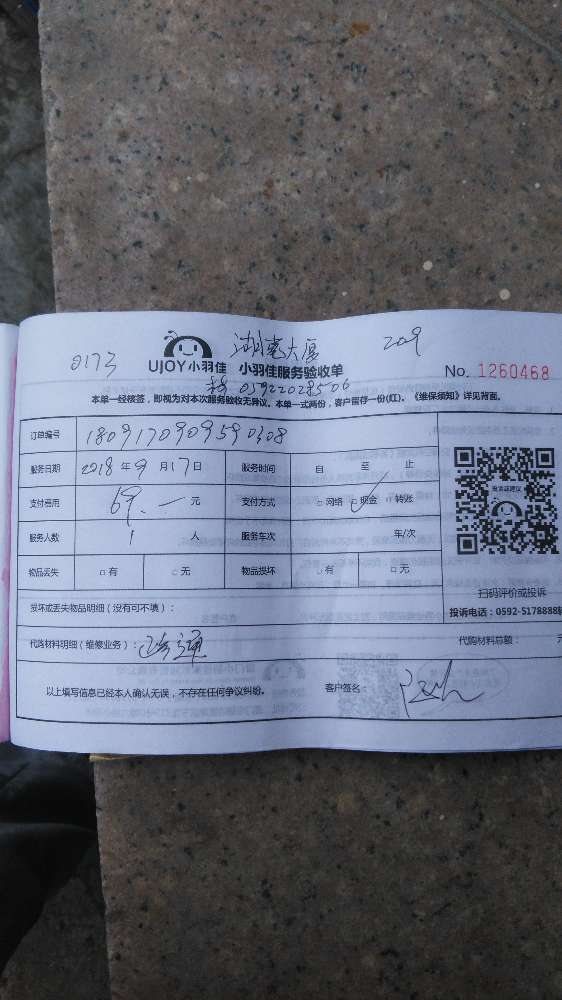 0173 湖惠大厦 209
UJOY小羽佳 小羽佳服务验收单 No. 1260468
15922028506
本单一经核签，即视为对本次服务验收无异议。本单一式两份，客户留存一份(红)。《维保须知》详见背面。
订单编号 1809170909590308
服务日期 2018 年 9 月 17 日 服务时间 自 至 止
支付费用 69.— 元 支付方式 □ 网络 □ 现金 □ 转账
服务人数 1 人 服务车次 车/次
物品丢失 □ 有 □ 无 物品损坏 □ 有 □ 无
投诉或建议
扫码评价或投诉
投诉电话：0592-5178888
损坏或丢失物品明细（没有可不填）：
代购材料明细（维修业务）： 代购材料总额： 元
以上填写信息已经本人确认无误，不存在任何争议纠纷。 客户签名：